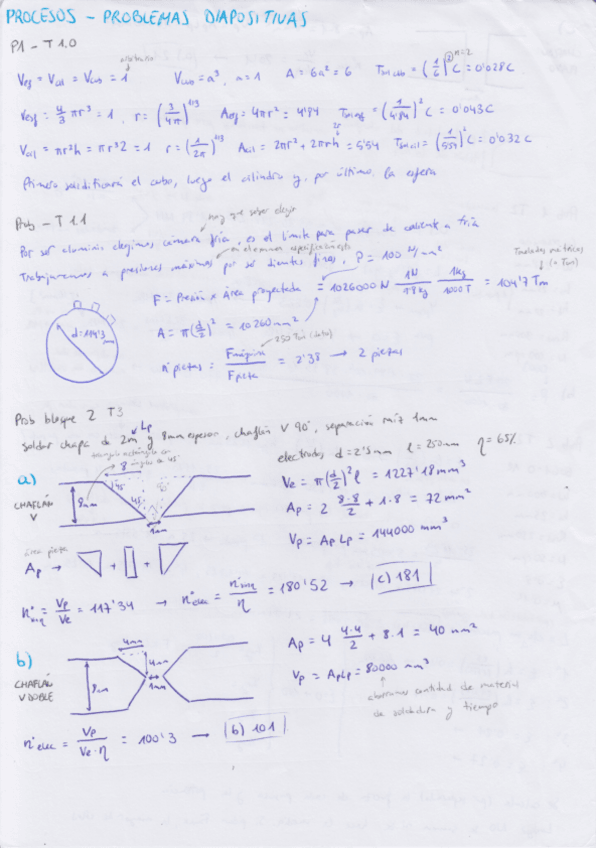 PROCESOS - PROBLEMAS DIAPOSITIVAS
P1 - T 1.0
Vesf = Vcil = Vcubo = 1 Vcubo = a³, a = 1 A = 6a² = 6 Tsol cubo = (1/6)² C = 0'028 C n=2
Vesf = 4/3 πr³ = 1, r = (3/4π)^1/3 Aesf = 4πr² = 4'84 Tsol esf = (1/4'84)² C = 0'043 C
Vcil = πr²h = πr³2 = 1 r = (1/2π)^1/3 Acil = 2πr² + 2πrh = 5'54 Tsol cil = (1/5'54)² C = 0'032 C
2r
Primero solidificará el cubo, luego el cilindro y, por último, la esfera
hay que saber elegir
Prob - T 1.1
Por ser aluminio elegimos cámara fría, es el límite para pasar de caliente a fría
Trabajaremos a presiones máximas por ser dientes finos, P = 100 N/mm²
Toneladas métricas
(= Tm)
F = Presión x Área proyectada = 1026000 N 1N 1kg / 1000 T = 104'7 Tm
A = π(d/2)² = 10260 mm²
d=114'3 mm
250 Tm (dato)
nº piezas = Fmáquina / Fpieza = 2'38 → 2 piezas
Prob bloque 2 T3
Lp
soldar chapa de 2m y 8mm espesor, chaflán V 90°, separación raíz 1mm
electrodos d = 2'5mm l = 250mm η = 65%
triángulo rectángulo con
ángulos de 45°
a)
8
45
8mm
45
CHAFLÁN
V
Ve = π(d/2)² l = 1227'18 mm³
Ap = 2 8·8/2 + 1·8 = 72 mm²
Vp = Ap Lp = 144000 mm³
área pieza
Ap → + +
nº = Vp/Ve = 117'34 → nº elec = nº/η = 180'52 → (c) 181
b)
4mm
4mm
CHAFLÁN
V DOBLE
8mm
1mm
Ap = 4 4·4/2 + 8·1 = 40 mm²
Vp = Ap Lp = 80000 mm³
ahorramos cantidad de material
de soldadura y tiempo
nº elec = Vp/Ve·η = 100'3 → (b) 101